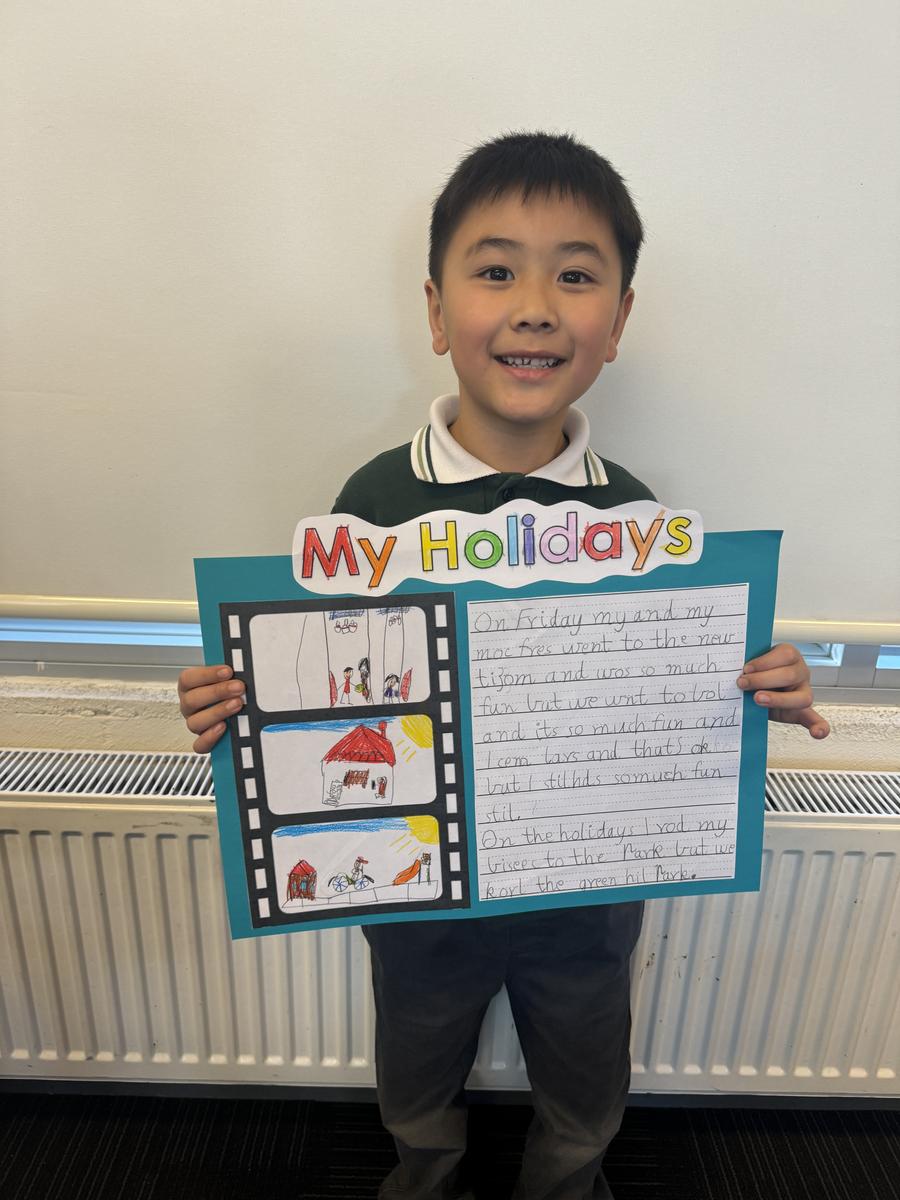 My Holidays
On Friday my and my
moc fres went to the new
tijom and wos so much
fun but we wnt to bol
and its so much fun and
I cem lars and that's ok
but I stil hds so much fun
stil.
On the holidays I rod my
to the Park but we
korl the green hil Park.